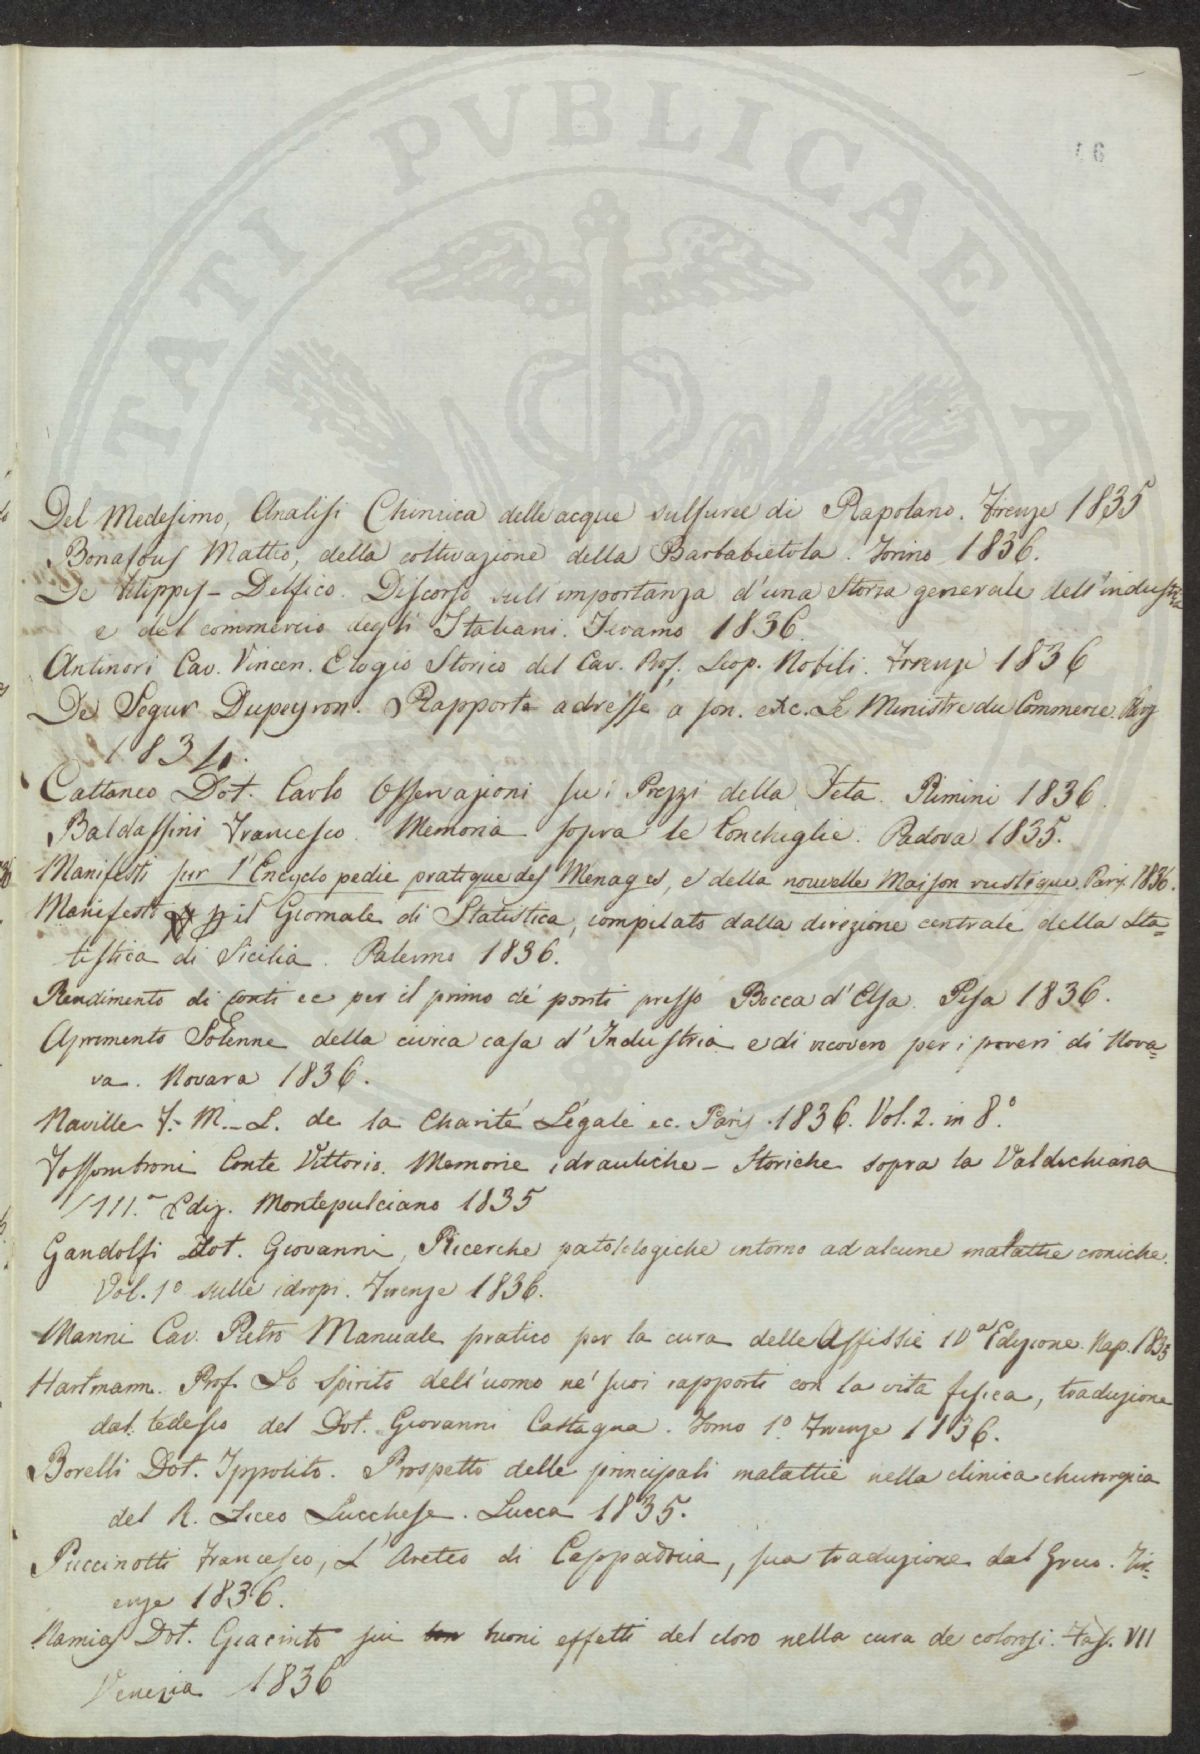 Del Medesimo, Analisi Chimica delle acque sulfuree di Rapolano. Firenze 1835
Bonafous Matteo, della coltivazione della Barbabietola. Torino 1836.
De Filippis-Delfico. Discorso sull'importanza d'una Storia generale dell'industria
e del commercio degli Italiani. Teramo 1836.
Antinori Cav. Vincen. Elogio Storico del Cav. Prof. Leop. Nobili. Firenze 1836
De Segur Dupeyron. Rapporte adressé à son. etc. Le Ministre du Commerce. Paris
1834.
Cattaneo Dot. Carlo Osservazioni sui Prezzi della Seta. Rimini 1836.
Baldassini Francesco. Memoria sopra le Conchiglie. Padova 1835.
Manifesti sur l'Encyclopedie pratique des Menages, e della nouvelle Maison rustique. Paris. 1836.
Manifesto p il Giornale di Statistica, compilato dalla direzione centrale della Sta=
tistica di Sicilia. Palermo 1836.
Rendimento di conti ec per il primo de' ponti presso Bocca d'Elsa. Pisa 1836.
Aprimento Solenne della civica casa d'Industria e di ricovero per i poveri di Nova=
ra. Novara 1836.
Naville F.-M.-L. de la Charité Légale ec. Paris. 1836. Vol. 2. in 8.°
Fossombroni Conte Vittorio. Memorie idrauliche-Storiche sopra la Valdichiana
III.ª Ediz. Montepulciano 1835
Gandolfi Dot. Giovanni, Ricerche patologiche intorno ad alcune malattie croniche.
Vol. 1° sulle idropi. Firenze 1836.
Manni Cav. Pietro Manuale pratico per la cura delle Asfissie IVª Edizione. Nap. 1835
Hartmann. Prof. Lo Spirito dell'uomo ne' suoi rapporti con la vita fisica, traduzione
dal tedesco del Dot. Giovanni Castagna. Tomo 1.° Firenze 1836.
Borelli Dot. Ippolito. Prospetto delle principali malattie nella clinica chirurgica
del R. Liceo Lucchese. Lucca 1835.
Puccinotti Francesco, L'Areteo di Cappadocia, sua traduzione dal Greco. Fir=
enze 1836.
Namias Dot. Giacinto sui buoni effetti del cloro nella cura de colorosi. Fas. VII
Venezia 1836